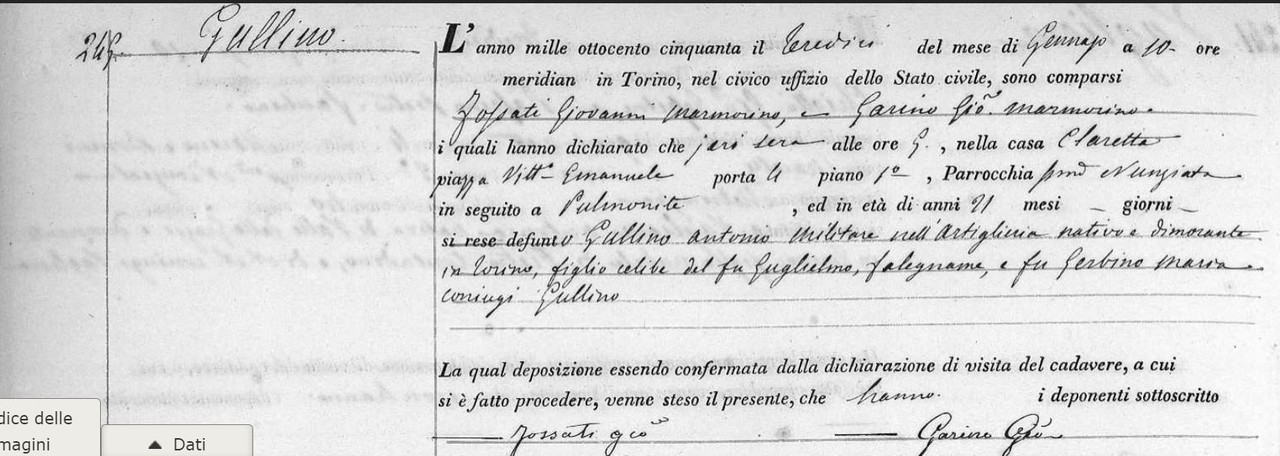 Gullino.
L'anno mille ottocento cinquanta il tredici del mese di Gennajo a 10 - ore
meridian in Torino, nel civico uffizio dello Stato civile, sono comparsi
Fossati Giovanni Marmorino, e Garino Gio. marmorino.
i quali hanno dichiarato che jeri sera alle ore 9. , nella casa Claretta
piazza Vitt. Emanuele porta 4 piano 1° , Parrocchia Nunziata
in seguito a Pulmonite , ed in età di anni 21 mesi - giorni -
si rese defunto Gullino Antonio Militare nell'Artiglieria nativo e dimorante
in Torino, figlio celibe del fu Guglielmo, falegname, e fu Gerbino Maria
coniugi Gullino
La qual deposizione essendo confermata dalla dichiarazione di visita del cadavere, a cui
si è fatto procedere, venne steso il presente, che hanno. i deponenti sottoscritto
Fossati Gio Garino Gio
dice delle
mmagini
Dati